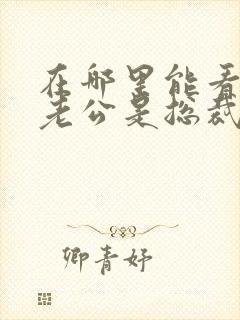 在哪里能看
老公是总裁
卿青妤